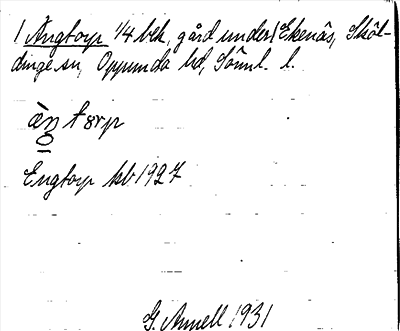 1 Ängtorp 1/4 bek, gård under 1 Ekenäs, Sköl-
dinge sn, Oppunda hd, Söml. l.
Engtorp kb. 1927
G. Annell 1931